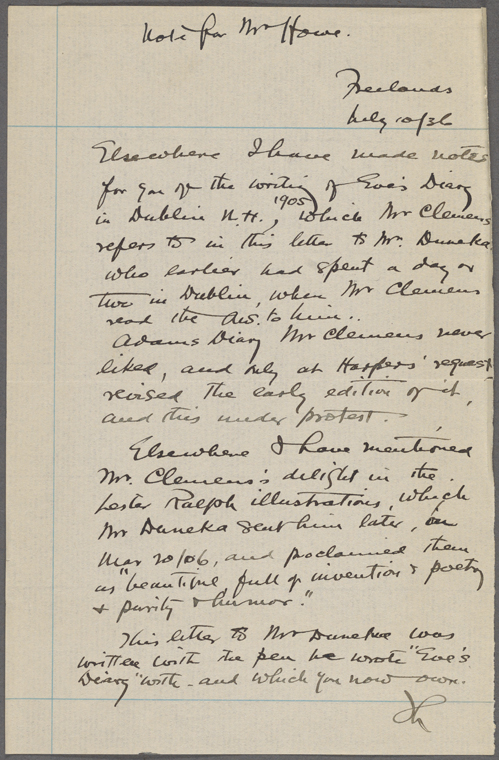 Note for Mr Howe.
Freelands
July 10/36
Elsewhere I have made notes
for you of the writing of Eve's Diary
in Dublin N.H., 1905, which Mr Clemens
refers to in this letter to Mr. Duneka
who earlier had spent a day or
two in Dublin, when Mr Clemens
read the MS. to him..
Adams Diary Mr Clemens never
liked, and only at Harpers' request
revised the early edition of it,
and this under protest.
Elsewhere I have mentioned
Mr. Clemens's delight in the
Lester Ralph illustrations, which
Mr Duneka sent him later, in
Mar 20/06, and proclaimed them
as "beautiful, full of invention & poetry
& purity & humor."
This letter to Mr Duneka was
written with the pen he wrote "Eve's
Diary" with - and which you now own.